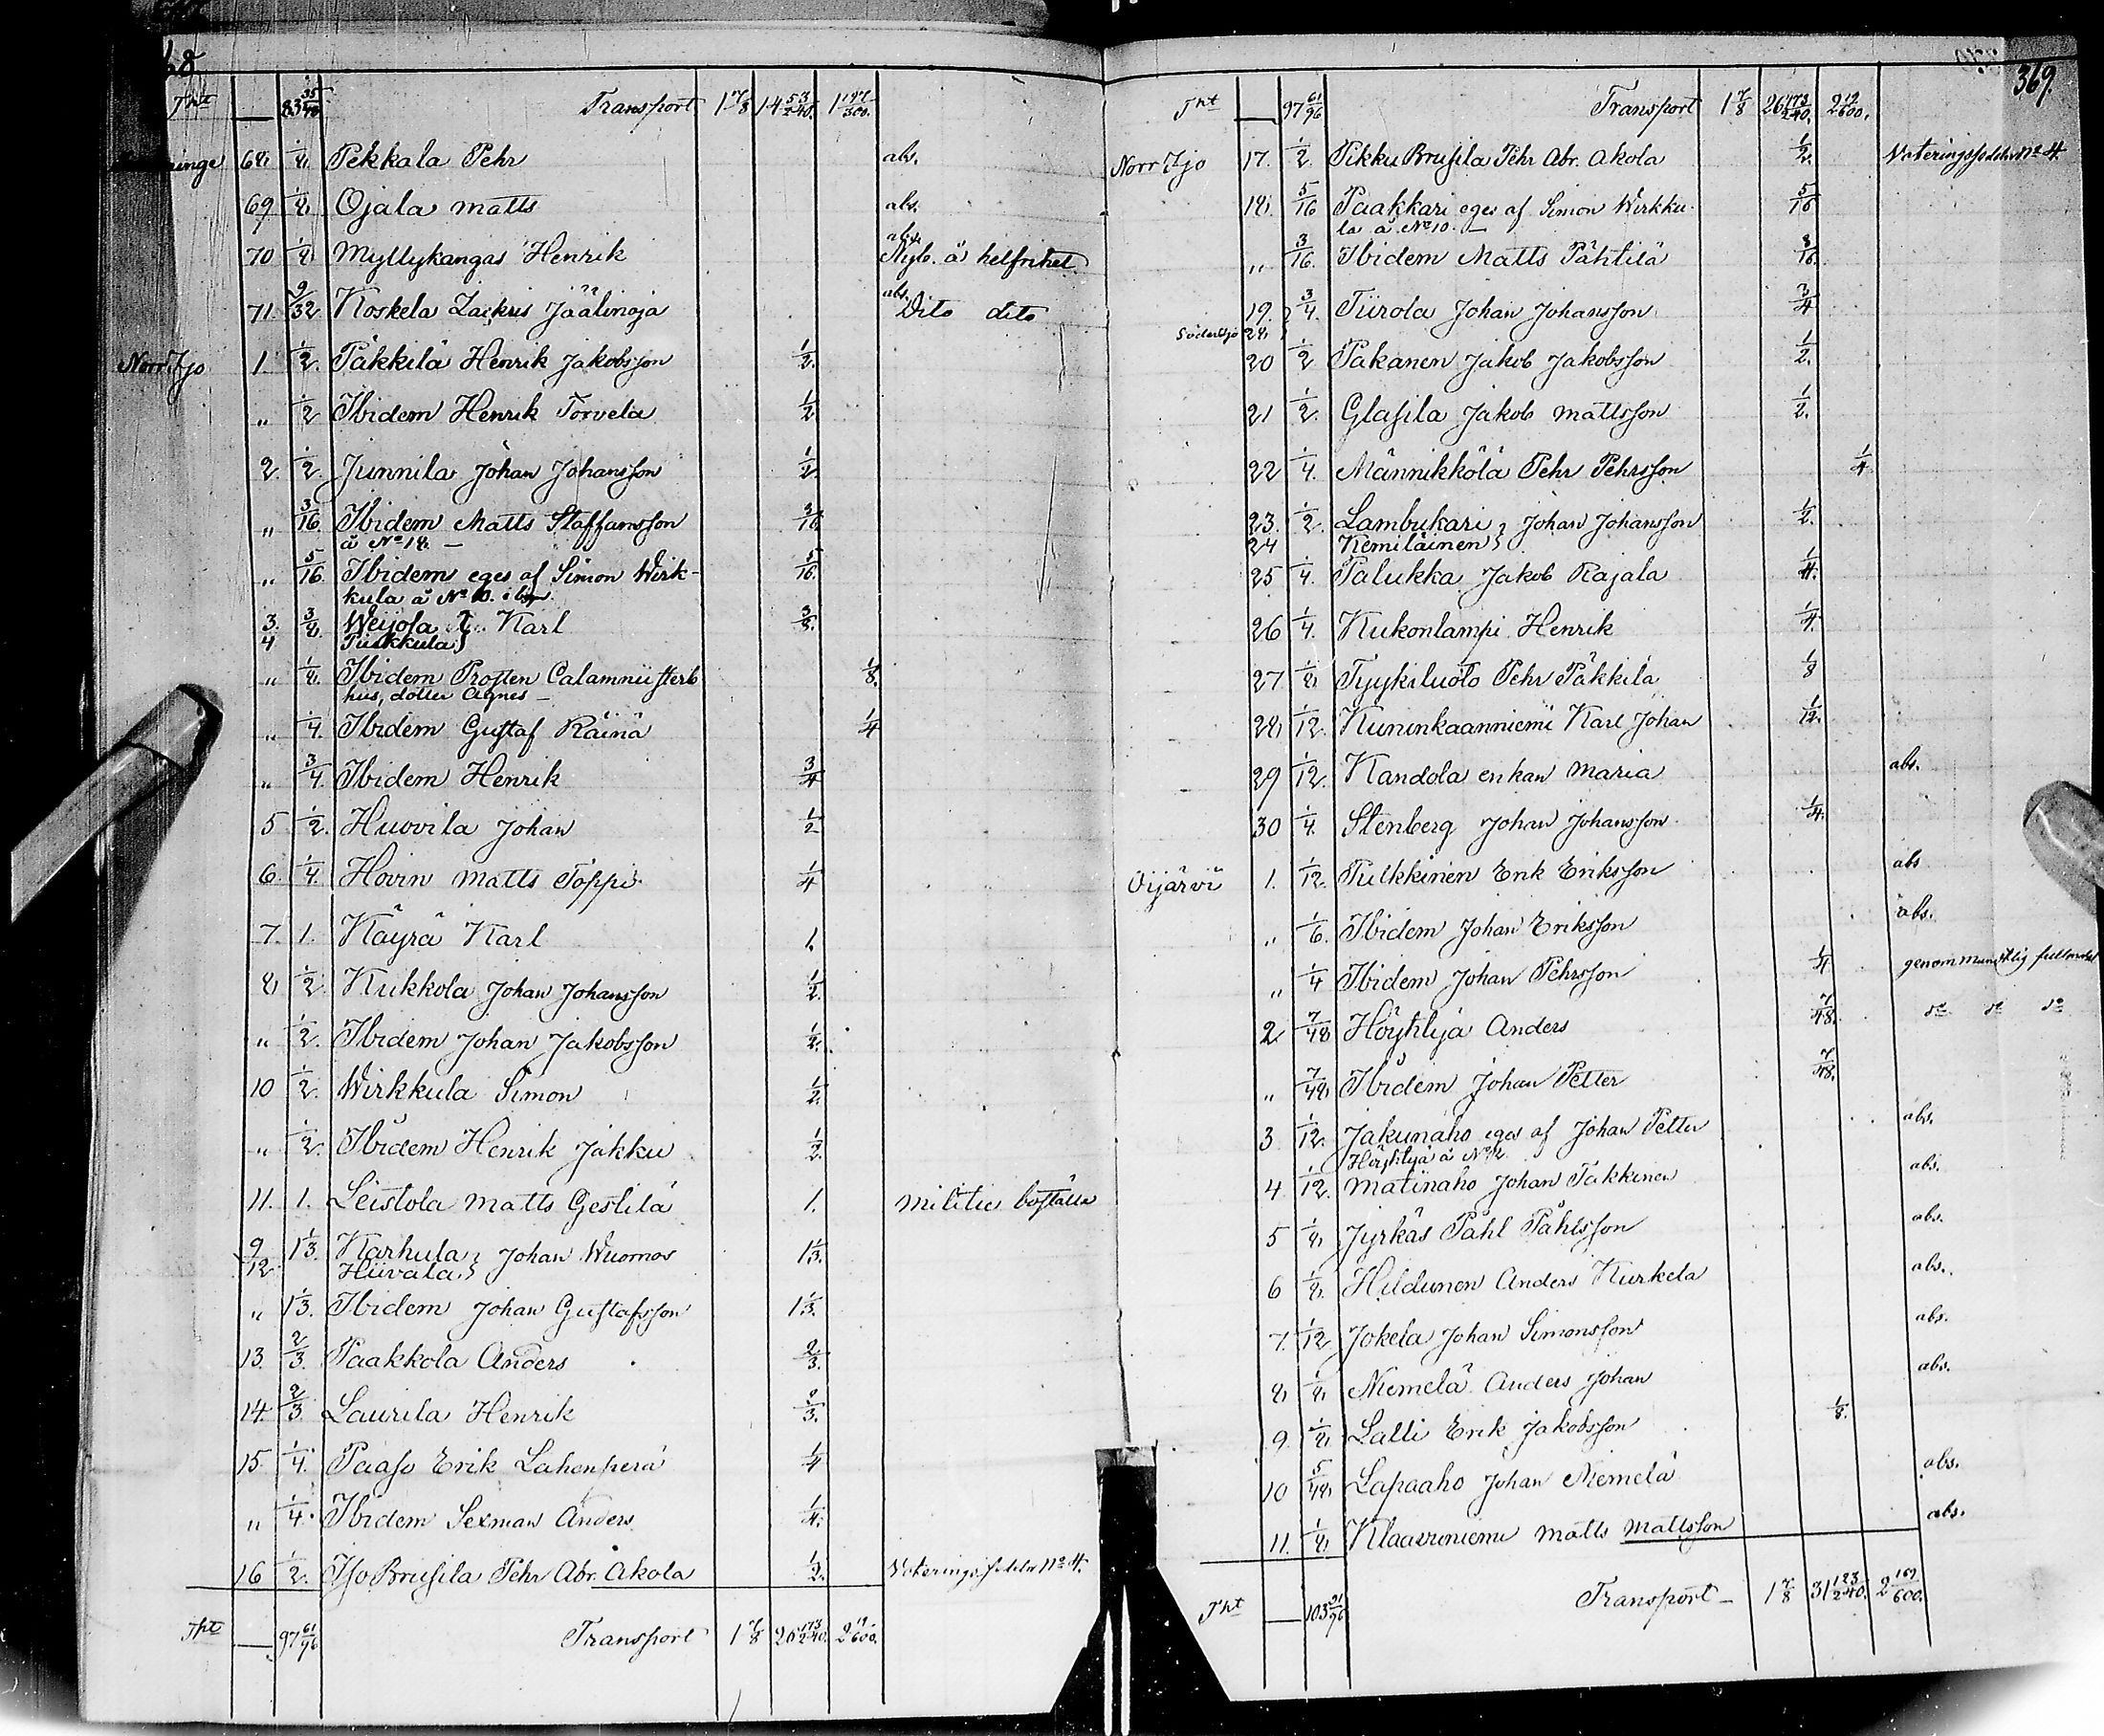 Tpt — 83 35/48 Transport 1 7/8 14 53/240. 1 197/300.
68. 1/8. Pekkala Pehr abs.
69 1/8. Ojala Matts abs.
70 1/8 Myllykangas Henrik abs. Nyb. å helfrihet
71. 9/32 Koskela Zackris Jäälinoja abs. Dito dito
Norr Ijo 1. 1/2. Päkkilä Henrik Jakobsson 1/2.
" 1/2 Ibidem Henrik Torvela 1/2
2. 1/2. Junnila Johan Johansson 1/2.
" 3/16. Ibidem Matts Staffansson 3/16.
å No 18. —
" 5/16. Ibidem eges af Simon Wirk- 5/16.
kula å No 10. iby.
3. 3/8. Weijola } Karl 3/8.
4 Puikkula }
" 1/8. Ibidem Prosten Calamnii sterb 1/8.
hus, dotter Agnes —
" 1/4. Ibidem Gustaf Räinä 1/4
" 3/4. Ibidem Henrik 3/4
5 1/2. Huovila Johan 1/2
6. 1/4. Hovin Matts Toppi 1/4
7. 1. Käyrä Karl 1.
8. 1/2 Kukkola Johan Johansson 1/2
" 1/2. Ibidem Johan Jakobsson 1/2.
10 1/2. Wirkkula Simon 1/2.
" 1/2. Ibidem Henrik Jakku 1/2.
11. 1. Leistola Matts Gestilä 1. Militie boställe
9 1 1/3. Karhula } Johan Wuornos 1 1/3.
12 Hiivala }
" 1 1/3. Ibidem Johan Gustafsson 1 1/3.
13. 2/3. Paakkola Anders 2/3.
14. 2/3 Laurila Henrik 2/3.
15. 1/4. Paaso Erik Lahenperä 1/4
" 1/4. Ibidem Sexman Anders 1/4.
16 1/2. Iso Brusila Pehr Abr. Akola 1/2. No 4.
Tpt — 97 61/96 Transport 1 7/8 26 173/240. 2 19/600.
369.
Tpt — 97 61/96 Transport 1 7/8 26 173/240. 2 19/600.
Norr Ijo 17. 1/2. Pikku Brusila Pehr Abr. Akola 1/2. No 4
18. 5/16 Paakkari eges af Simon Wirkku- 5/16
la å No 10. —
" 3/16. Ibidem Matts Pähtilä 3/16.
19. } 3/4. Tiirola Johan Johansson 3/4
Söder Ijo 28. }
20 1/2 Pakanen Jakob Jakobsson 1/2.
21 1/2. Glasila Jakob Mattsson 1/2.
22 1/4. Männikkölä Pehr Pehrsson 1/4
23. 1/2. Lambukari } Johan Johansson 1/2.
24 Kemiläinen }
25 1/4. Palukka Jakob Rajala 1/4.
26 1/4. Kukonlampi Henrik 1/4.
27 1/8. Tyykiluoto Pehr Päkkilä 1/8
28. 1/12. Kuninkaanniemi Karl Johan 1/12.
29 1/12. Kandola enkan Maria abs.
30 1/4. Stenberg Johan Johansson 1/4.
Oijärvi 1. 1/12. Pulkkinen Erik Eriksson abs
" 1/6. Ibidem Johan Eriksson abs.
" 1/4 Ibidem Johan Pehrsson 1/4 genom muntlig fullmakt
2 7/48 Höyhtyä Anders 7/48. do do do
" 7/48. Ibidem Johan Petter 7/48.
3 1/12. Jakunaho eges af Johan Petter abs.
Höyhtyä å No 2
4 1/12. Matinaho Johan Pakkinen abs.
5 1/8. Jyrkäs Påhl Påhlsson abs.
6 1/8. Huldunen Anders Kurkela abs.
7. 1/12 Jokela Johan Simonsson abs.
8. 1/8. Niemelä Anders Johan abs.
9. 1/8. Lalli Erik Jakobsson 1/8.
10 5/48. Lapaaho Johan Niemelä abs.
11. 1/8. Klaavoniemi Matts Mattsson abs.
Tpt — 103 91/96 Transport — 1 7/8 31 123/240. 2 169/600.